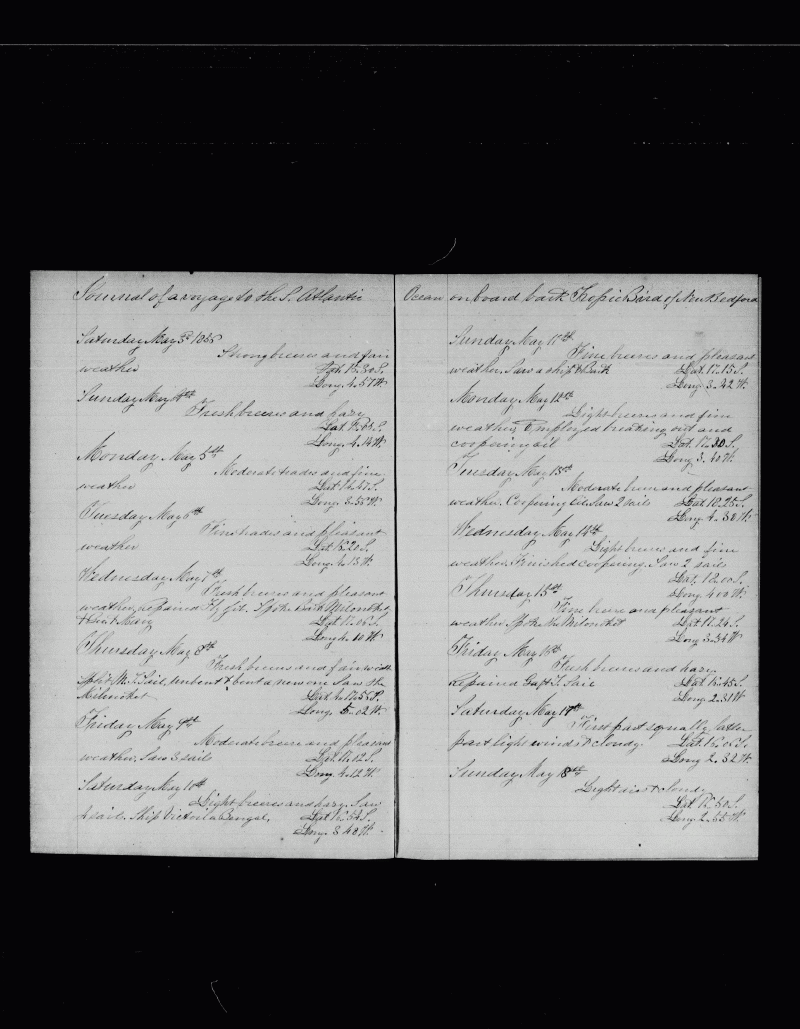 Journal of a voyage to the S. Atlantic
Saturday May 3rd
Strong breezes and fair
weather Lat. 15.30 S.
Long. 4.57 W.
Sunday May 4th
Fresh breezes and hazy
Lat S.
Long. 4.14 W.
Monday May 5th
Moderate trades and fine
weather Lat S.
Long. W.
Tuesday May 6th
Fine trades and pleasant
weather Lat S.
Long. 4.13 W.
Wednesday May 7th
Fresh breezes and pleasant
weather, repaired Spoke Bark
Lat S.
Long 4.10 W.
Thursday May 8th
Fresh breezes and fair with
Sail, unbent & bent a new one Saw the
Lat
Long. 5.02 W.
Friday May 9th
Moderate breeze and pleasant
weather, Saw 3 sails Lat. 17.12 S.
Long 4.12 W.
Saturday May 10th
Light breezes and hazy. Saw
Ship Victoria Bengal, Lat S.
Long. 3.40 W.
Ocean on board bark Tropic Bird of New Bedford
Sunday May 11th
Fine breezes and pleasant
weather, Saw a ship & Bark Lat. 17.15 S.
Long. 3.42 W.
Monday, May 12th
Light breezes and fine
weather, Employed breaking out and
coopering oil Lat. 17.30 S.
Long 3.40 W.
Tuesday May 13th
Moderate breeze and pleasant
weather. Coopering Oil. Saw 2 sails Lat. 18.25 S.
Long 4.30 W.
Wednesday May 14th
Light breezes and fine
weather, Finished coopering, Saw 2 sails
Lat. 18.00 S.
Long 4.00 W.
Thursday 15th
Fine breeze and pleasant
weather, Spoke Lat 17.24 S.
Long 3.34 W.
Friday May 16th
Fresh breezes and hazy.
Repaired Gaft T. Sail Lat. 16.45 S.
Long. 2.31 W.
Saturday May 17th
First part squally latter
part light winds & cloudy. Lat. 16.06 S.
Long 2.32 W.
Sunday May 18th
Light airs & cloudy
Lat S.
Long 2.55 W.